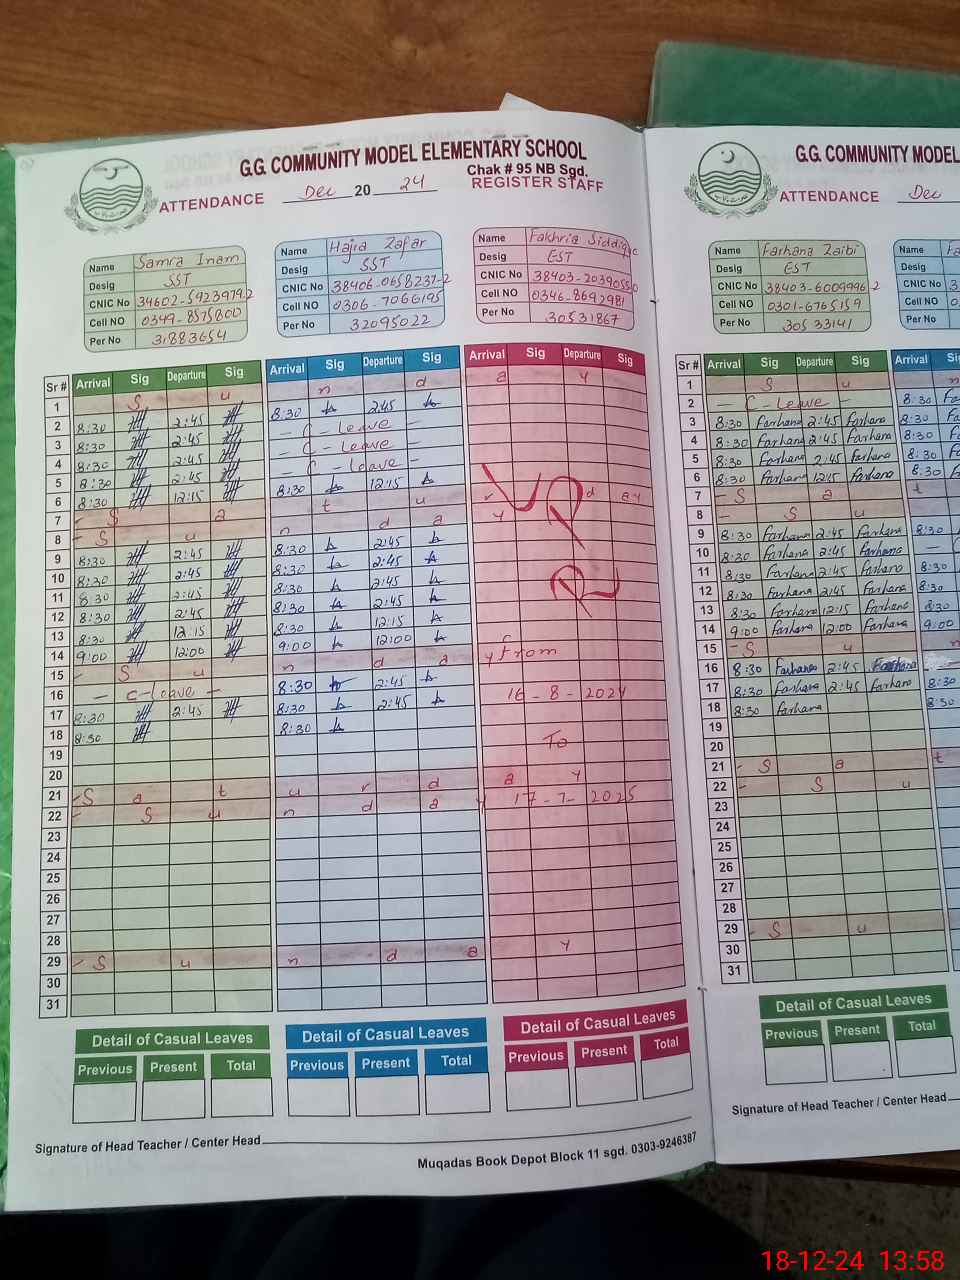 G.G. COMMUNITY MODEL ELEMENTARY SCHOOL
Chak # 95 NB Sgd.
ATTENDANCE Dec 20 24 REGISTER STAFF
Name Samra Inam
Desig SST
CNIC No 34602-5923979-2
Cell NO 0349-8575800
Per No 31883654
Name Hajra Zafar
Desig SST
CNIC No 38406-0658237-2
Cell NO 0306-7066195
Per No 32095022
Name Fakhria Siddique
Desig EST
CNIC No
Cell NO 0346-8692981
Per No 30531867
Sr # Arrival Sig Departure Sig Arrival Sig Departure Sig Arrival Sig Departure Sig
1 S u n d a y
2 8:30 2:45 8:30 2:45
3 8:30 2:45 - C-Leave -
4 8:30 2:45 - C-Leave -
5 8:30 2:45 - C-leave -
6 8:30 12:15 8:30 12:15
7 - S a t u r d ay
8 - S u n d a y
9 8:30 2:45 8:30 2:45
10 8:30 2:45 8:30 2:45
11 8:30 2:45 8:30 2:45
12 8:30 2:45 8:30 2:45
13 8:30 12:15 8:30 12:15
14 9:00 12:00 9:00 12:00
15 - S u n d a y From
16 - C-Leave - 8:30 2:45 16-8-2024
17 8:30 2:45 8:30 2:45
18 8:30 8:30 To
19
20
21 - S a t u r d a y
22 - S u n d a y 17-7-2025
23
24
25
26
27
28
29 - S u n d a y
30
31
Detail of Casual Leaves
Previous Present Total
Detail of Casual Leaves
Previous Present Total
Detail of Casual Leaves
Previous Present Total
Signature of Head Teacher / Center Head
Muqadas Book Depot Block 11 sgd. 0303-9246387
G.G. COMMUNITY MODEL
ATTENDANCE Dec
Name Farhana Zaibi
Desig EST
CNIC No 38403-6009996-2
Cell NO 0301-6765159
Per No 30533141
Name
Desig
CNIC No
Cell NO
Per No
Sr # Arrival Sig Departure Sig Arrival
1 S u n
2 - C-Leave - 8:30
3 8:30 Farhana 2:45 Farhana 8:30
4 8:30 Farhana 2:45 Farhana 8:30
5 8:30 Farhana 2:45 Farhana 8:30
6 8:30 Farhana 12:15 Farhana 8:30
7 - S a t
8 - S u
9 8:30 Farhana 2:45 Farhana 8:30
10 8:30 Farhana 2:45 Farhana -
11 8:30 Farhana 2:45 Farhana 8:30
12 8:30 Farhana 2:45 Farhana 8:30
13 8:30 Farhana 12:15 Farhana 8:30
14 9:00 Farhana 12:00 Farhana 9:00
15 - S u n
16 8:30 Farhana 2:45 Farhana
17 8:30 Farhana 2:45 Farhana 8:30
18 8:30 Farhana 8:30
19
20
21 - S a t
22 - S u
23
24
25
26
27
28
29 - S u
30
31
Detail of Casual Leaves
Previous Present Total
Signature of Head Teacher / Center Head
18-12-24 13:58